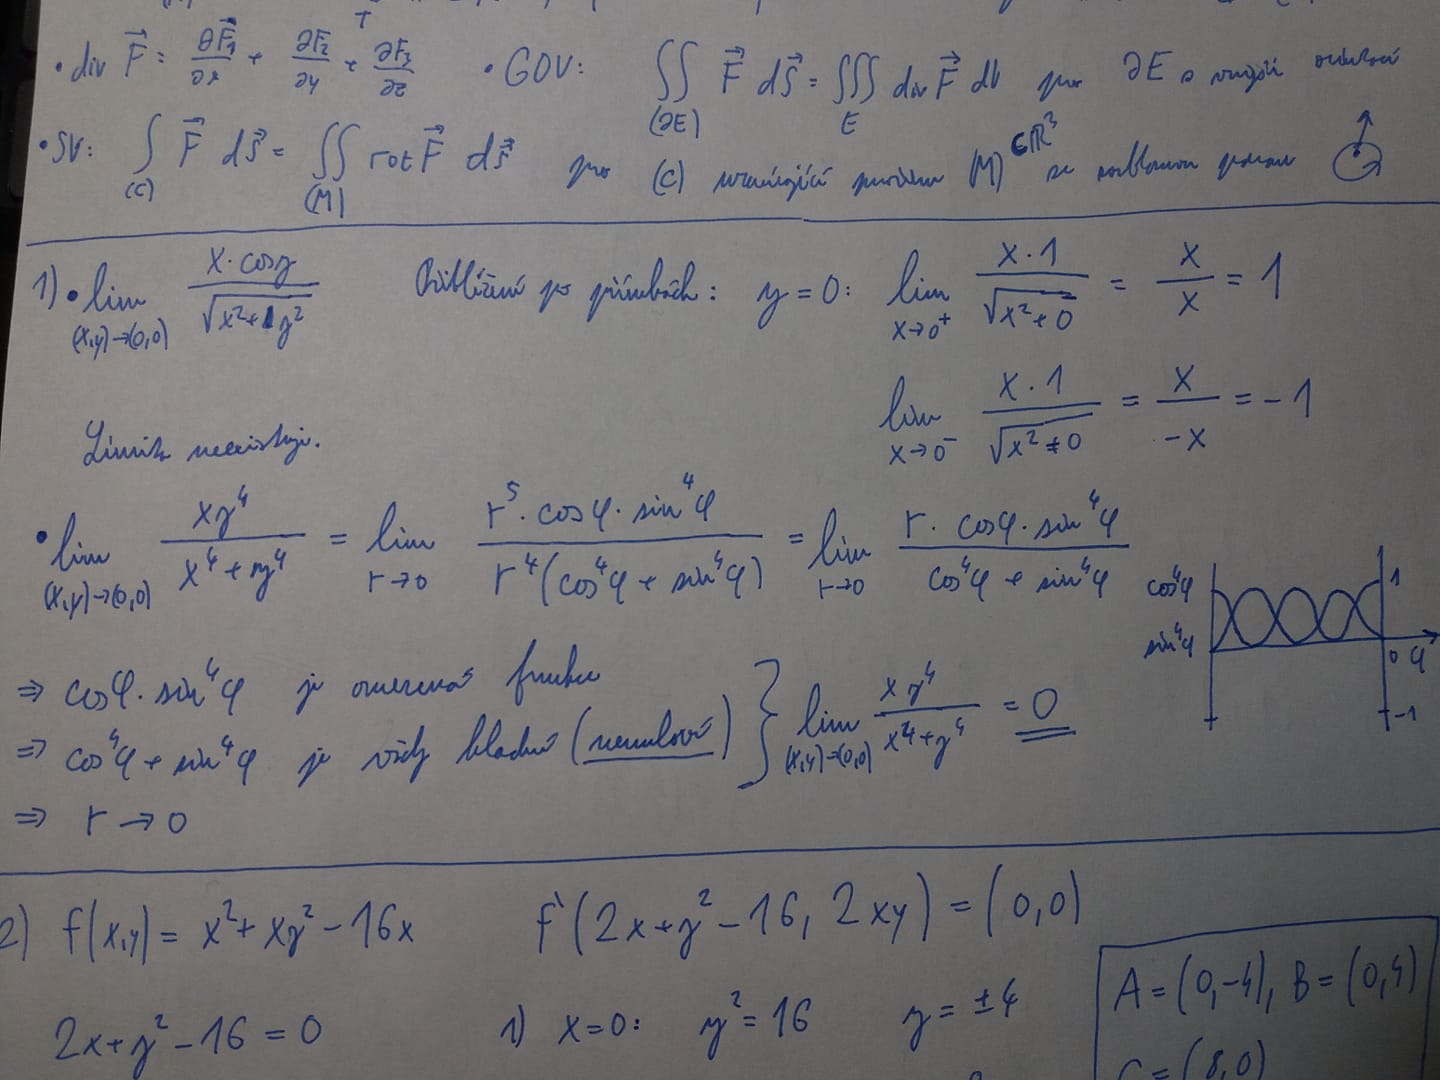 • div F⃗ = ∂F⃗₁/∂x + ∂F₂/∂y + ∂F₃/∂z • GOV: ∬_(∂E) F⃗ dS⃗ = ∭_E div F⃗ dV pro ∂E s vnější orientací
• SV: ∫_(C) F⃗ ds⃗ = ∬_(M) rot F⃗ dS⃗ pro (C) (M) ∈ℝ³ se
1) • lim_(x,y)→(0,0) x·cosy / √(x²+y²) Přiblížení po přímkách: y=0: lim_x→0⁺ x·1 / √(x²+0) = x/x = 1
lim_x→0⁻ x·1 / √(x²+0) = x/-x = -1
Limita neexistuje.
• lim_(x,y)→(0,0) xy⁴ / x⁴+y⁴ = lim_r→0 r⁵·cosφ·sin⁴φ / r⁴(cos⁴φ+sin⁴φ) = lim_r→0 r·cosφ·sin⁴φ / cos⁴φ+sin⁴φ
cos⁴φ 1
sin⁴φ 0 φ
-1
⇒ cosφ·sin⁴φ je omezená funkce
⇒ cos⁴φ+sin⁴φ je vždy kladné (nenulové) } lim_(x,y)→(0,0) xy⁴ / x⁴+y⁴ = 0
⇒ r→0
2) f(x,y) = x²+xy²-16x f'(2x+y²-16, 2xy) = (0,0)
A=(0,-4), B=(0,4)
2x+y²-16=0 1) x=0: y²=16 y=±4
C=(8,0)